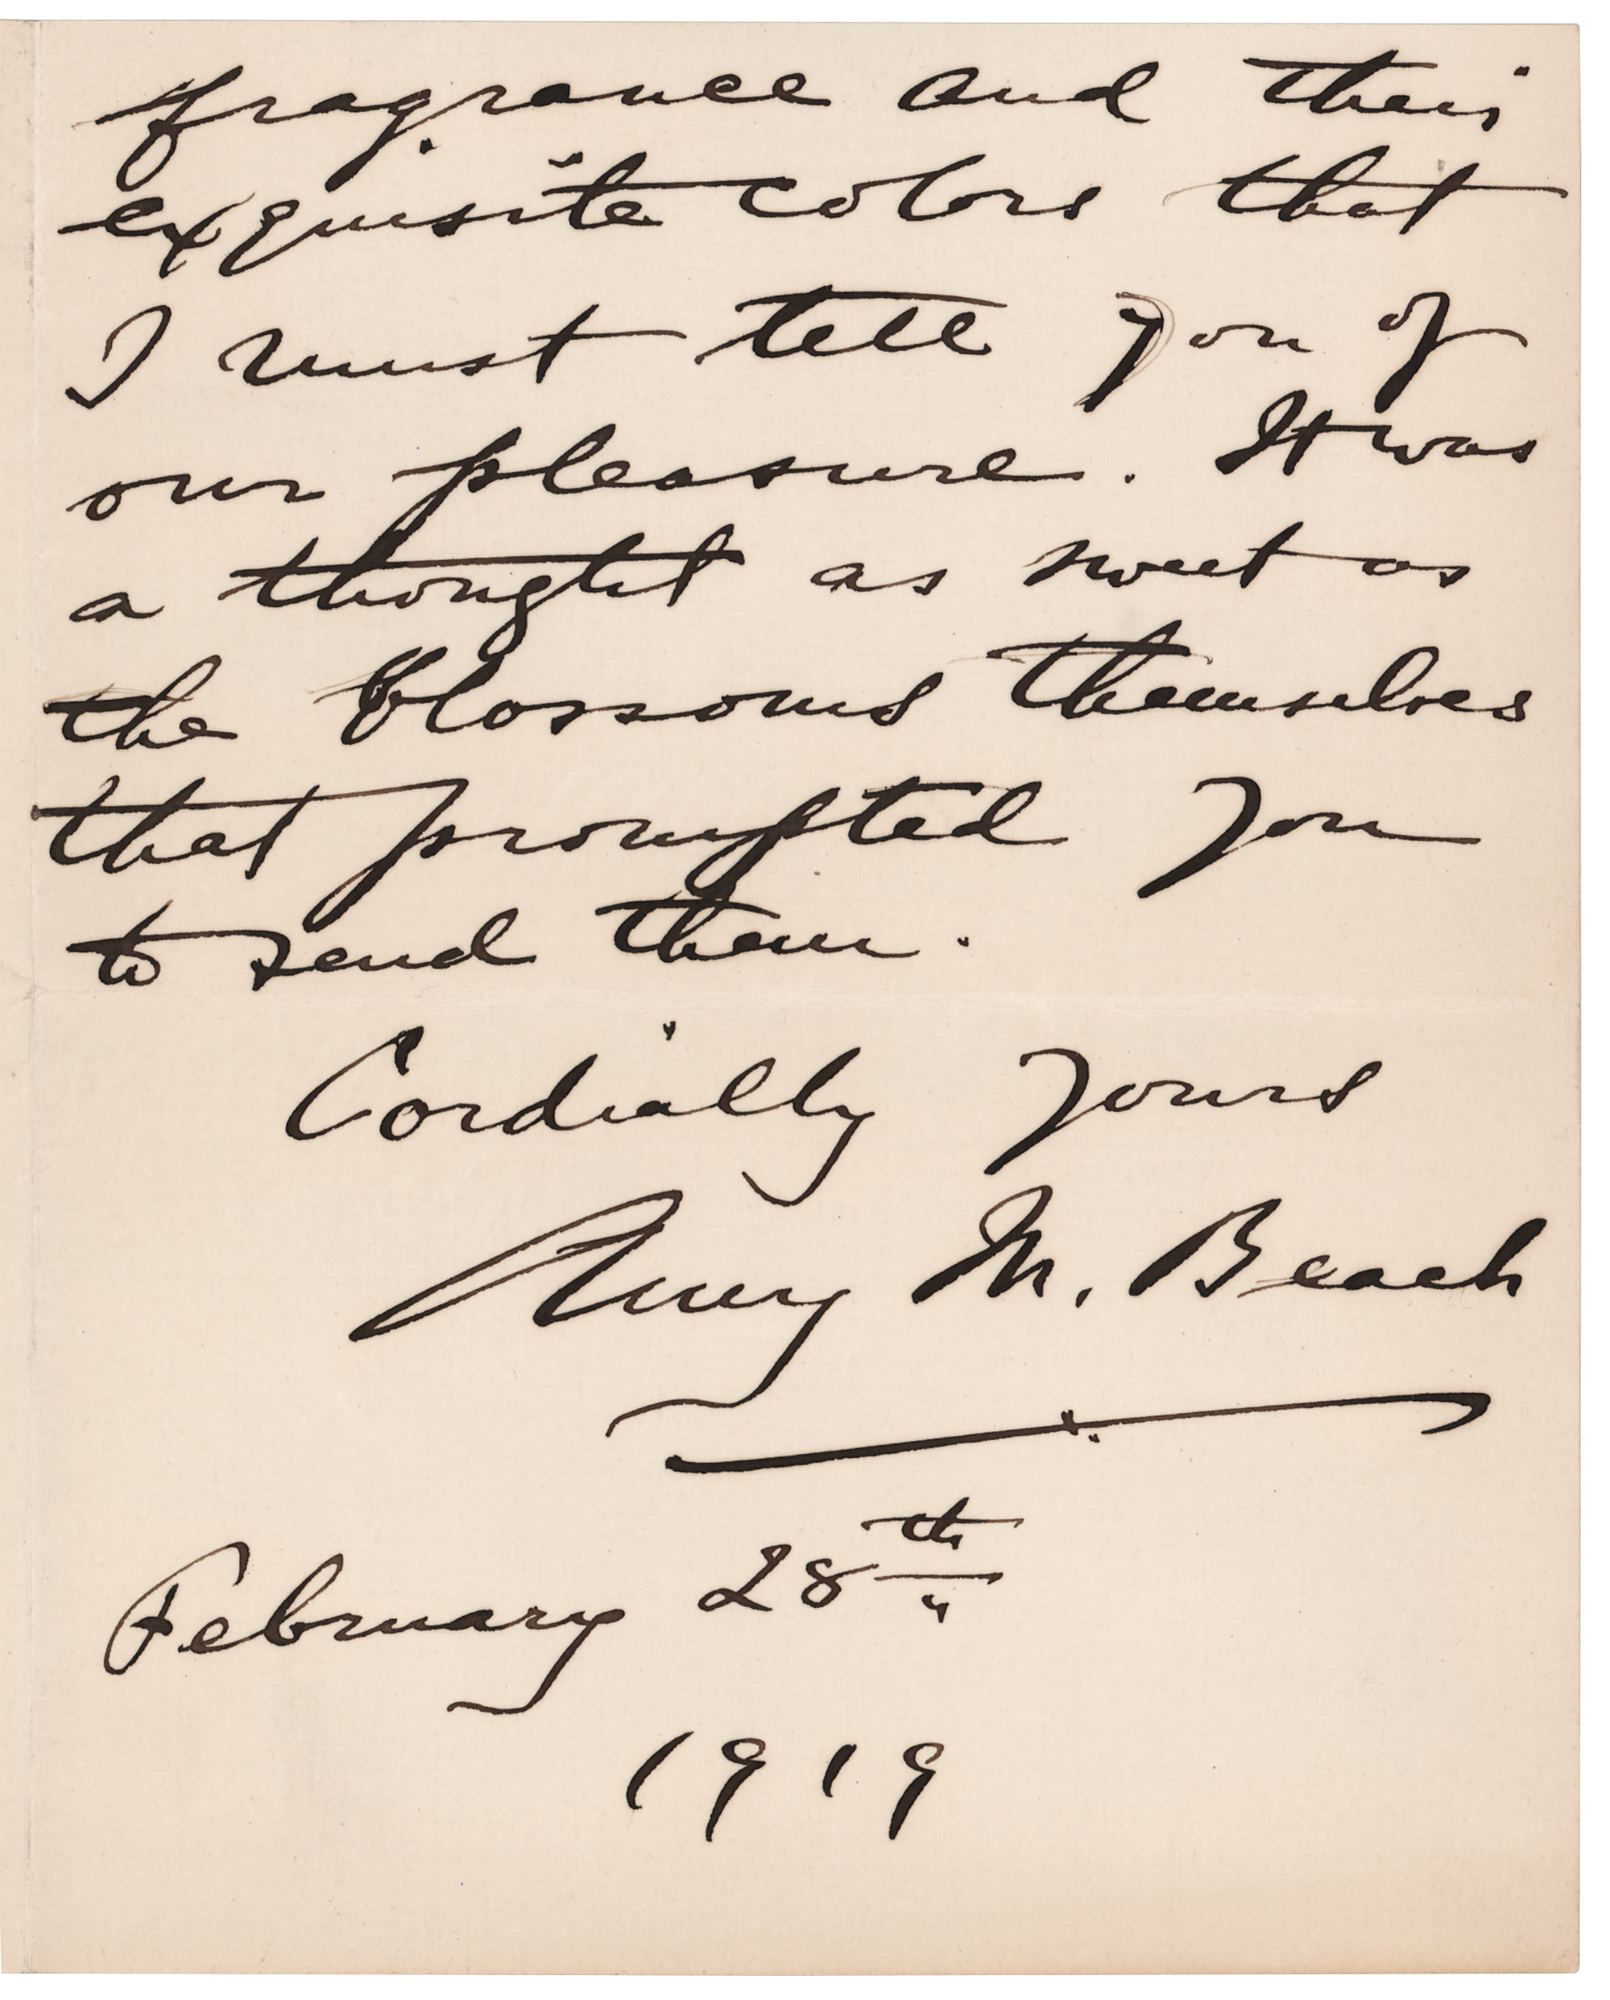 fragrance and their
exquisite colors that
I must tell you of
our pleasure. It was
a thought as sweet as
the blossoms themselves
that prompted you
to send them.
Cordially yours
Amy M. Beach
February 28th
1919